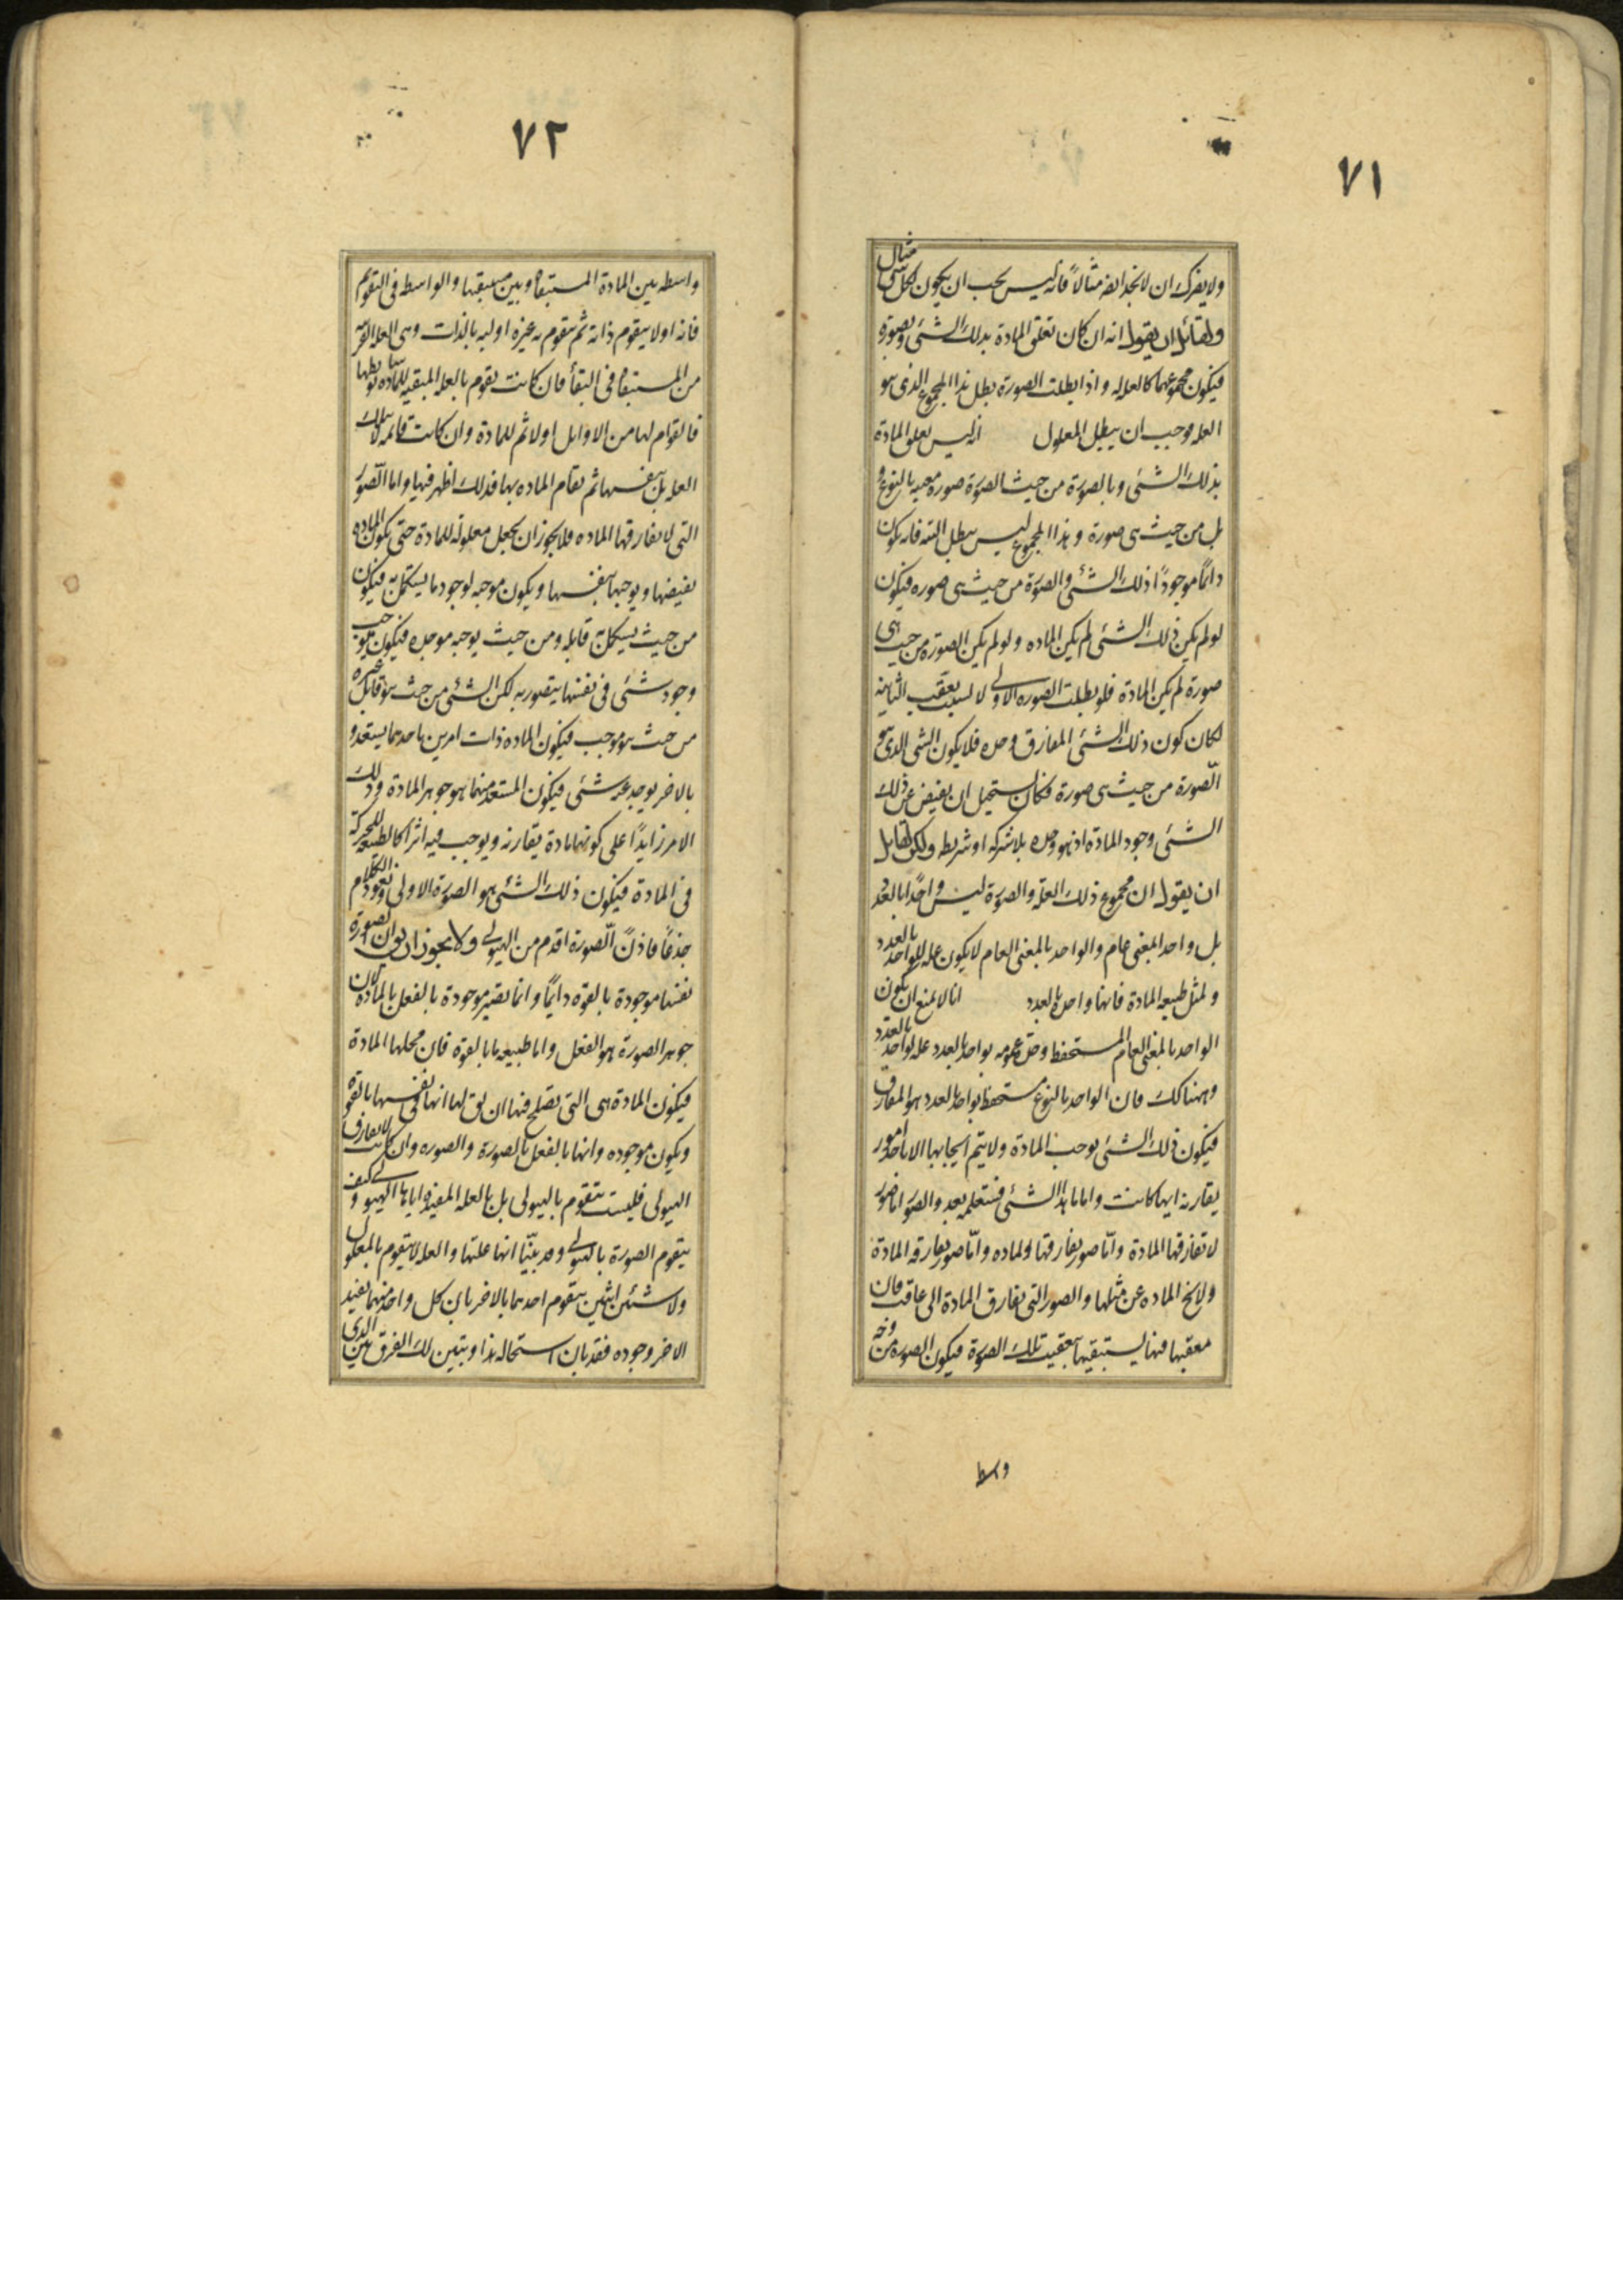 ٧١
ولا يضرك ان لا نجد لهذا مثالاً فانه ليس يجب ان يكون لكل شى مثال
ولقائل ان يقول انه ان كان تعلق المادة بذلك الشئ وبصورة
فيكون مجموعهما كالعلة له واذا بطلت الصورة بطل هذا المجموع الذى هو
العله فوجب ان يبطل المعلول انه ليس تعلق المادة
بذلك الشئ وبالصورة من حيث الصورة صورة معينه بالنوع
بل من حيث هى صورة وهذا المجموع ليس يبطل البته فانه يكون
دائمًا موجودًا ذلك الشئ والصورة من حيث هى صوره فيكون
لو لم يكن ذلك الشئ لم يكن الماده ولو لم يكن الصورة من حيث هى
صورة لم يكن المادة فلو بطلت الصوره الاولى لا لسبب تعقب الثانية
لكان يكون ذلك الشئ المفارق وحده فلا يكون الشئ الذى هو
الصورة من حيث هى صورة فكان يستحيل ان يفيض عن ذلك
الشئ وجود المادة اذ هو وحده بلا شركه او شريطه ولكن لقايل
ان يقول ان مجموع ذلك العلة والصورة ليس واحدًا بالعدد
بل واحد بمعنى عام والواحد بالمعنى العام لا يكون عله للواحد بالعدد
ولمثل طبيعه المادة فانها واحدة بالعدد انا لا نمنع ان يكون
الواحد بالمعنى العام المستحفظ وحدة عمومه بواحد بالعدد عله لواحد بالعدد
وههنا كك فان الواحد بالنوع مستحفظ بواحد بالعدد هو المفارق
فيكون ذلك الشئ يوجب المادة ولا يتم ايجابها الا باحد امور
يقارنه ايها كانت واما ما هذا الشئ فستعلمه بعد والصور اما صور
لا تفارقها المادة واما صور يفارقها الماده
ولا يخ الماده عن مثلها والصور التى تفارق المادة الى عاقب فان
معقبها فيها يستبقيها بتعقيب تلك الصورة فيكون الصوره من وجه
واسطه
٧٢
واسطه بين المادة المستبقاه وبين مستبقيها والواسطه فى التقويم
فانه اولا يتقوم ذاته ثم يتقوم به غيره اوليه بالذات وهى العله القريبه
من المستبقاه فى البقأ فان كانت تقوم بالعله المبقيه للمادة بواسطتها
فالقوام لها من الاوايل اولا ثم للمادة وان كانت قائمه لا بتلك
العله بل بنفسها ثم تقام الماده بها فذلك اظهر فيها واما الصور
التى لا تفارقها الماده فلا يجوز ان يجعل معلولة للمادة حتى تكون الماده
تقتضيها ويوجبها بنفسها ويكون موجبه لوجود ما يستكمل به فيكون
من حيث يستكمل به قابله ومن حيث يوجبه موجده فيكون يوجب
وجود شئ فى نفسها يتصور به لكن الشئ من حيث هو قابل غيره
من حيث هو موجب فيكون الماده ذات امرين باحدهما يستعد و
بالاخر يوجد عنه شئ فيكون المستعد منهما هو جوهر المادة وذلك
الامر زايدًا على كونها مادة يقارنه ويوجب فيه اثرا كالطبيعه للحركه
فى المادة فيكون ذلك الشئ هو الصورة الاولى ويعود الكلام
جذعًا فاذن الصورة اقدم من الهيولى ولا يجوز ان يق ان الصورة
بنفسها موجودة بالقوة دايمًا وانما يصير موجودة بالفعل بالمادة لان
جوهر الصورة هو الفعل واما طبيعه ما بالقوه فان محلها المادة
فيكون المادة هى التى تصلح فيها ان يق لها انها فى نفسها بالقوه
ويكون موجوده وانها بالفعل بالصورة والصوره وان كانت لا تفارق
الهيولى فليست تتقوم بالهيولى بل بالعله المفيدة اياها الهيولى وكيف
يتقوم الصورة بالهيولى وقد بيّنا انها علتها والعله لا يتقوم بالمعلول
ولا شئن اثنين يتقوم احدهما بالاخر بان كل واحد منهما يفيد
الاخر وجوده فقد بان استحاله هذا ويتبين لك الفرق بين الذى